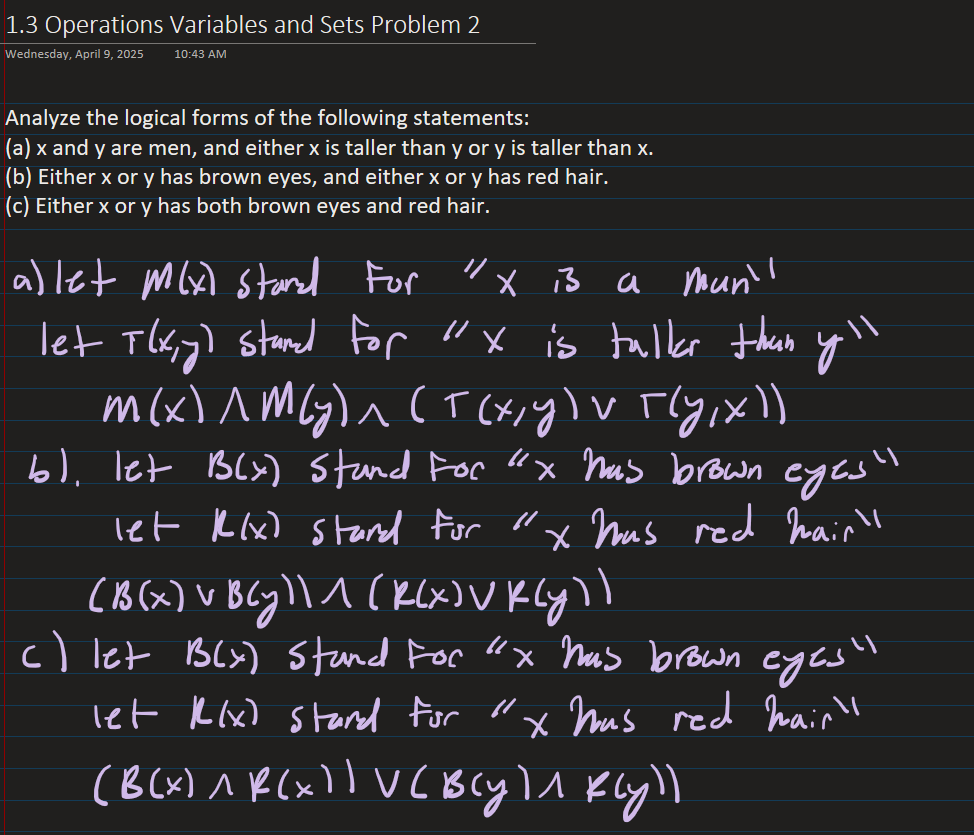 1.3 Operations Variables and Sets Problem 2
Wednesday, April 9, 2025 10:43 AM
Analyze the logical forms of the following statements:
(a) x and y are men, and either x is taller than y or y is taller than x.
(b) Either x or y has brown eyes, and either x or y has red hair.
(c) Either x or y has both brown eyes and red hair.
a) let M(x) stand for "x is a man"
let T(x,y) stand for "x is taller than y"
M(x) ∧ M(y) ∧ (T(x,y) ∨ T(y,x))
b). let B(x) stand for "x has brown eyes"
let R(x) stand for "x has red hair"
(B(x) ∨ B(y)) ∧ (R(x) ∨ R(y))
c) let B(x) stand for "x has brown eyes"
let R(x) stand for "x has red hair"
(B(x) ∧ R(x)) ∨ (B(y) ∧ R(y))